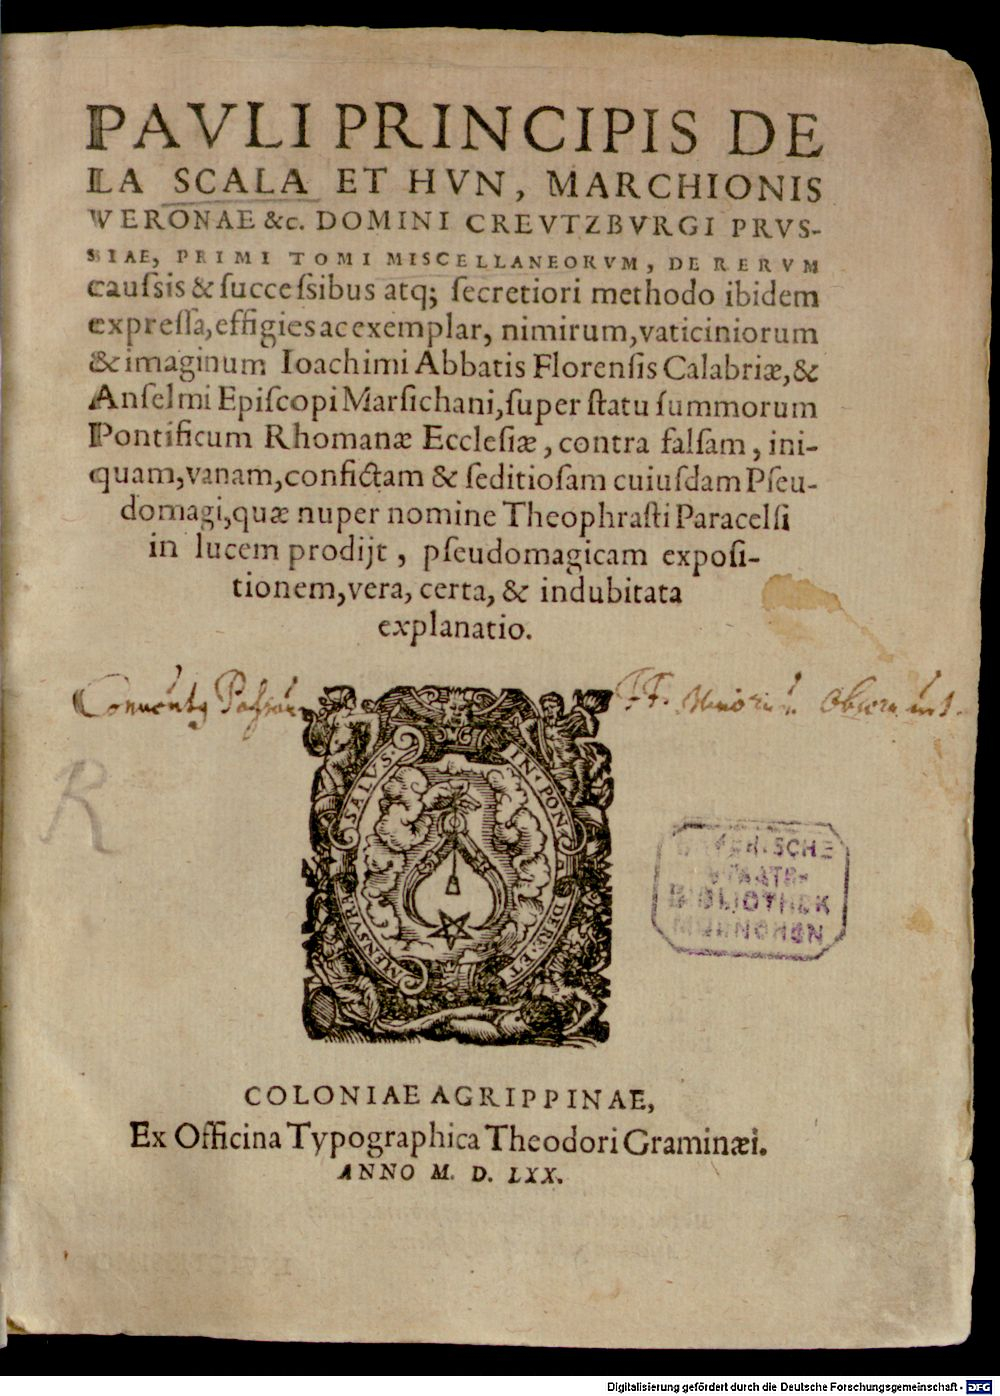 PAVLI PRINCIPIS DE
LA SCALA ET HVN, MARCHIONIS
VERONAE &c. DOMINI CREVTZBVRGI PRVS-
SIAE, PRIMI TOMI MISCELLANEORVM, DE RERVM
cauſsis & ſucceſsibus atq; ſecretiori methodo ibidem
expreſſa, effigies ac exemplar, nimirum, vaticiniorum
& imaginum Ioachimi Abbatis Florenſis Calabriæ, &
Anſelmi Epiſcopi Marſichani, ſuper ſtatu ſummorum
Pontificum Rhomanæ Eccleſiæ, contra falſam, ini-
quam, vanam, confictam & ſeditioſam cuiuſdam Pſeu-
domagi, quæ nuper nomine Theophraſti Paracelſi
in lucem prodijt, pſeudomagicam expoſi-
tionem, vera, certa, & indubitata
explanatio.
FF. Minorum
R
SALVS: IN PON DERE: ET MENSVRA
BAYERISCHE
STAATS-
BIBLIOTHEK
MUENCHEN
COLONIAE AGRIPPINAE,
Ex Officina Typographica Theodori Graminæi.
ANNO M. D. LXX.
Digitalisierung gefördert durch die Deutsche Forschungsgemeinschaft - DFG